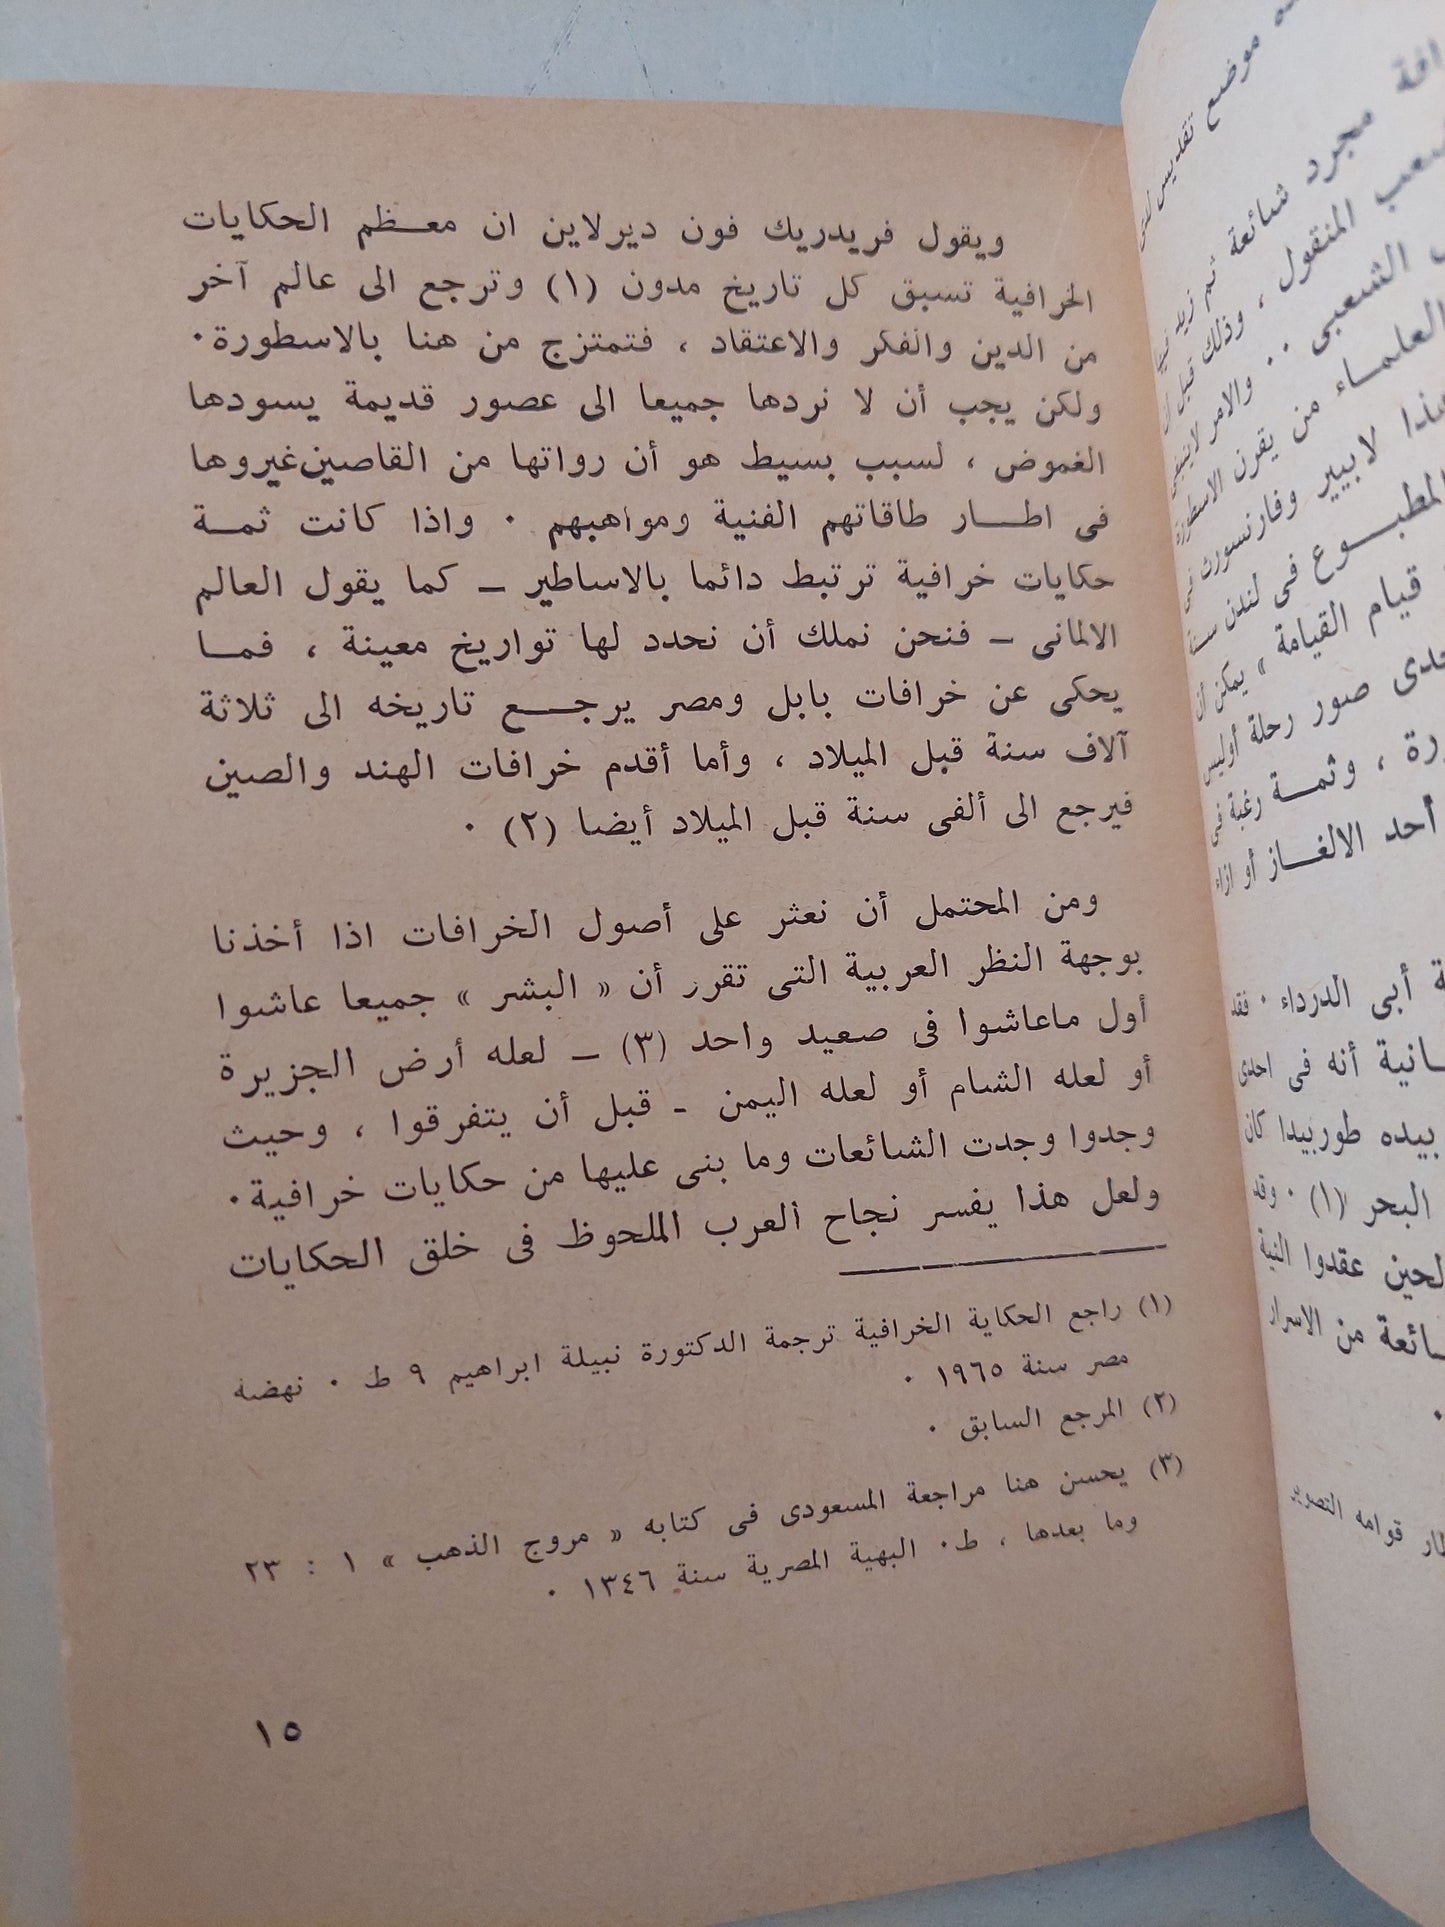 ويقول فريدريك فون ديرلاين ان معظم الحكايات
الخرافية تسبق كل تاريخ مدون (١) وترجع الى عالم آخر
من الدين والفكر والاعتقاد ، فتمتزج من هنا بالاسطورة٠
ولكن يجب أن لا نردها جميعا الى عصور قديمة يسودها
الغموض ، لسبب بسيط هو أن رواتها من القاصين غيروها
فى اطار طاقاتهم الفنية ومواهبهم ٠ واذا كانت ثمة
حكايات خرافية ترتبط دائما بالاساطير ـ كما يقول العالم
الالمانى ـ فنحن نملك أن نحدد لها تواريخ معينة ، فما
يحكى عن خرافات بابل ومصر يرجع تاريخه الى ثلاثة
آلاف سنة قبل الميلاد ، وأما أقدم خرافات الهند والصين
فيرجع الى ألفى سنة قبل الميلاد أيضا (٢) ٠
ومن المحتمل أن نعثر على أصول الخرافات اذا أخذنا
بوجهة النظر العربية التى تقرر أن « البشر » جميعا عاشوا
أول ماعاشوا فى صعيد واحد (٣) ـ لعله أرض الجزيرة
أو لعله الشام أو لعله اليمن ـ قبل أن يتفرقوا ، وحيث
وجدوا وجدت الشائعات وما بنى عليها من حكايات خرافية٠
ولعل هذا يفسر نجاح العرب الملحوظ فى خلق الحكايات
(١) راجع الحكاية الخرافية ترجمة الدكتورة نبيلة ابراهيم ٩ ط ٠ نهضة
مصر سنة ١٩٦٥ ٠
(٢) المرجع السابق ٠
(٣) يحسن هنا مراجعة المسعودى فى كتابه « مروج الذهب » ١ : ٢٣
وما بعدها ، ط٠ البهية المصرية سنة ١٣٤٦ ٠
١٥
موضع تقديس
مجرد شائعة ثم زيد
المنقول ، وذلك قبل
الشعبى ٠٠ والامر
العلماء من يقرن الاسطورة
لابيير وفارنسورث فى
المطبوع فى لندن سنة
قيام القيامة » يمكن أن
صور رحلة أوليس
، وثمة رغبة فى
أحد الالغاز أو ازاء
أبى الدرداء ٠ فقد
أنه فى احدى
بيده طوربيدا كان
البحر (١) ٠ وقد
عقدوا النية
من الاسرار
٠
قوامه التصوير